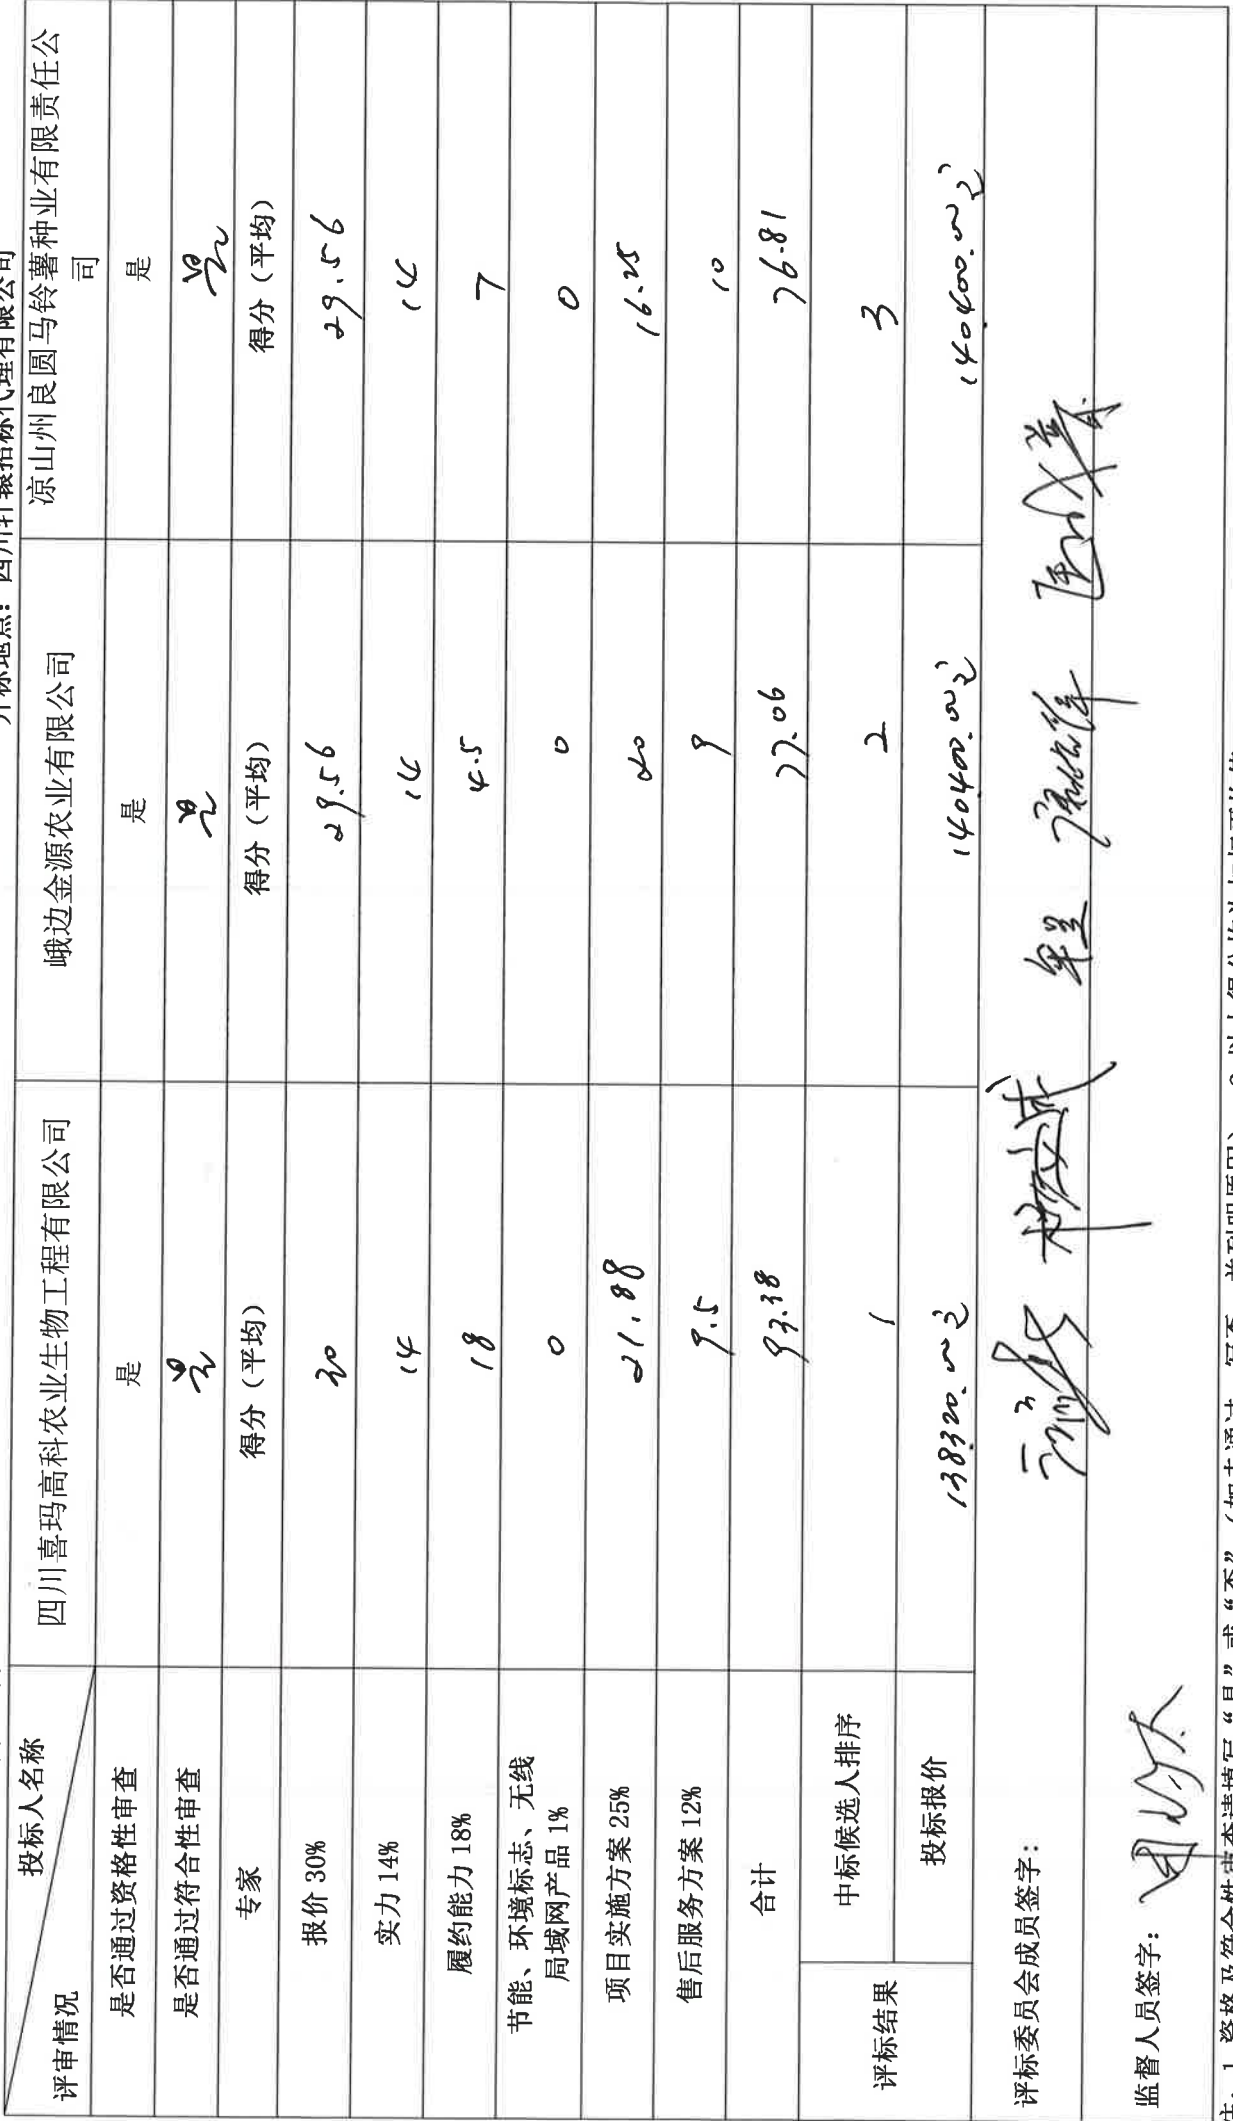 开标地点：四川轩辕招标代理有限公司
投标人名称
评审情况
四川喜玛高科农业生物工程有限公司
峨边金源农业有限公司
凉山州良圆马铃薯种业有限责任公
司
是否通过资格性审查 是 是 是
是否通过符合性审查 是 是 是
专家 得分（平均） 得分（平均） 得分（平均）
报价 30% 30 29.56 29.56
实力 14% 14 14 14
履约能力 18% 18 4.5 7
节能、环境标志、无线
局域网产品 1% 0 0 0
项目实施方案 25% 21.88 20 16.25
售后服务方案 12% 9.5 9 10
合计 93.38 77.06 76.81
评标结果
中标候选人排序 1 2 3
投标报价 138320.00元 140400.00元 140400.00元
评标委员会成员签字：
监督人员签字：
注：1.资格及符合性审查请填写“是”或“否”（如未通过，写否，并列明原因）